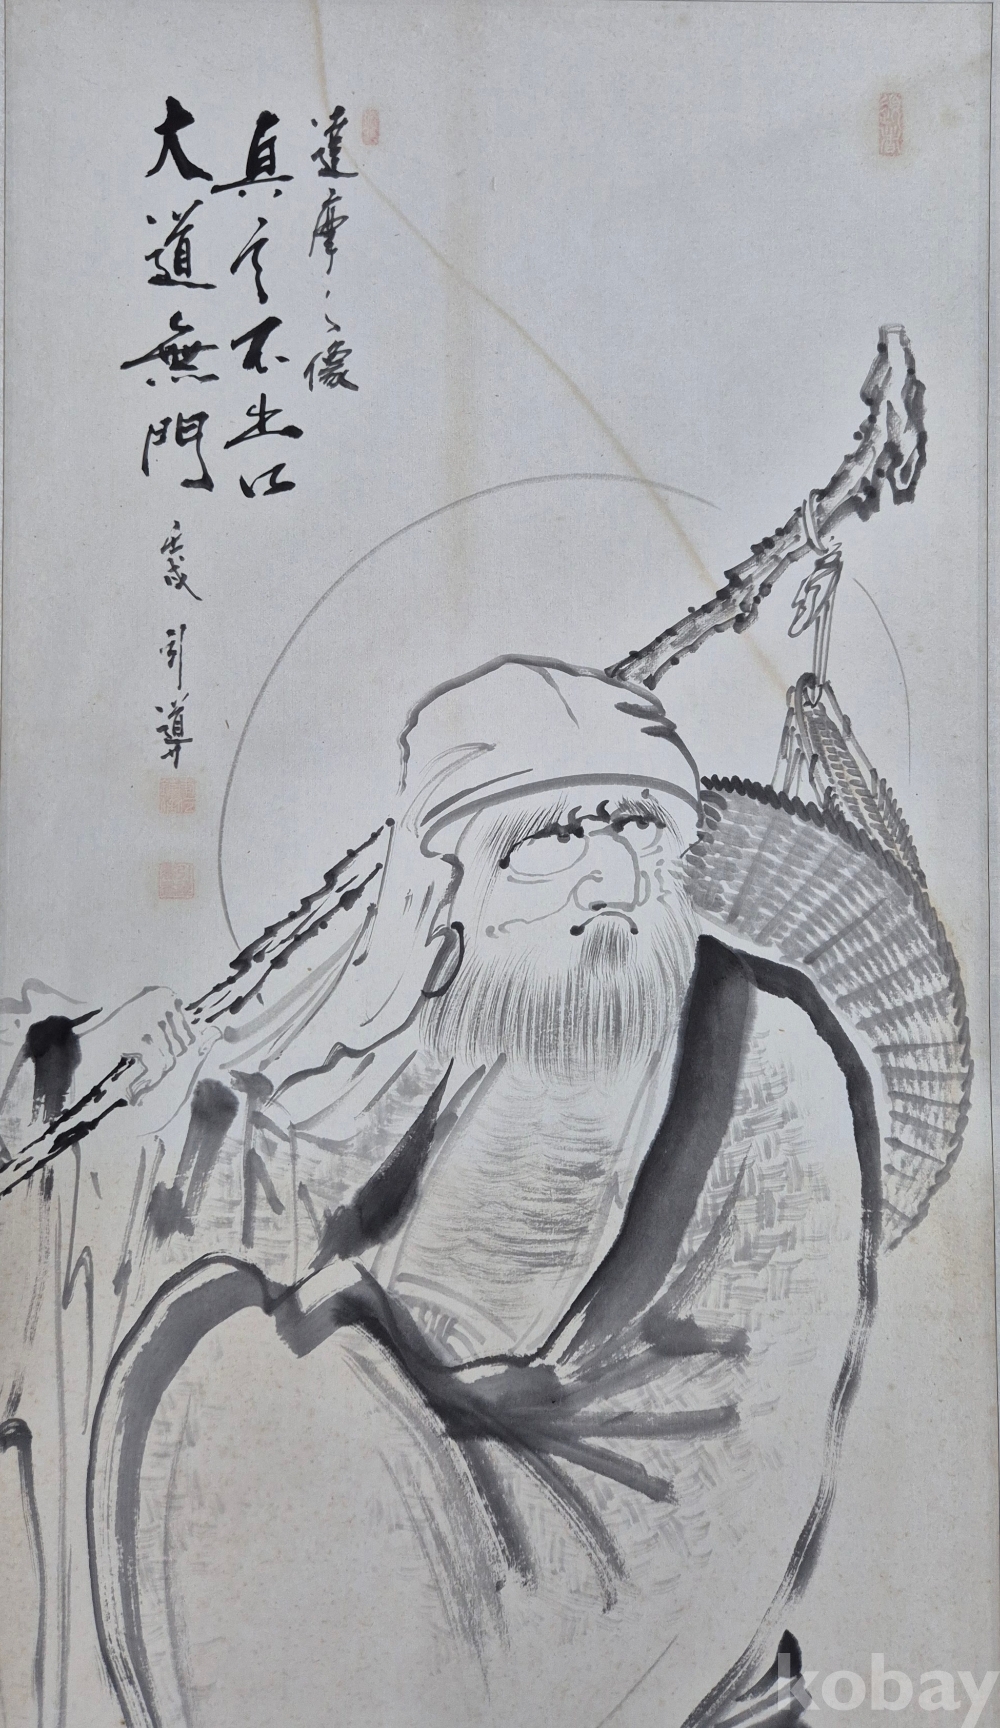 達摩之像
真言不出口
大道無門
壬戌 引導
kobay